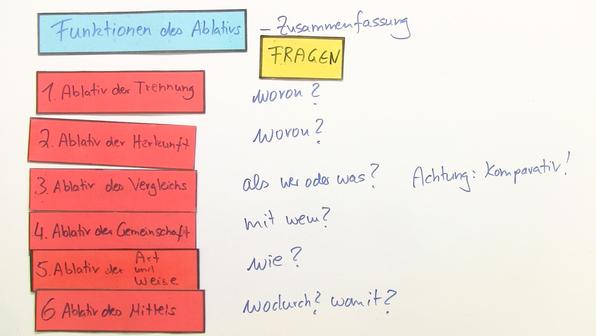 Funktionen des Ablativs – Zusammenfassung
FRAGEN
1. Ablativ der Trennung wovon?
2. Ablativ der Herkunft wovon?
3. Ablativ des Vergleichs als wer oder was? Achtung: Komparativ!
4. Ablativ der Gemeinschaft mit wem?
5. Ablativ der Art und Weise wie?
6 Ablativ des Mittels wodurch? womit?